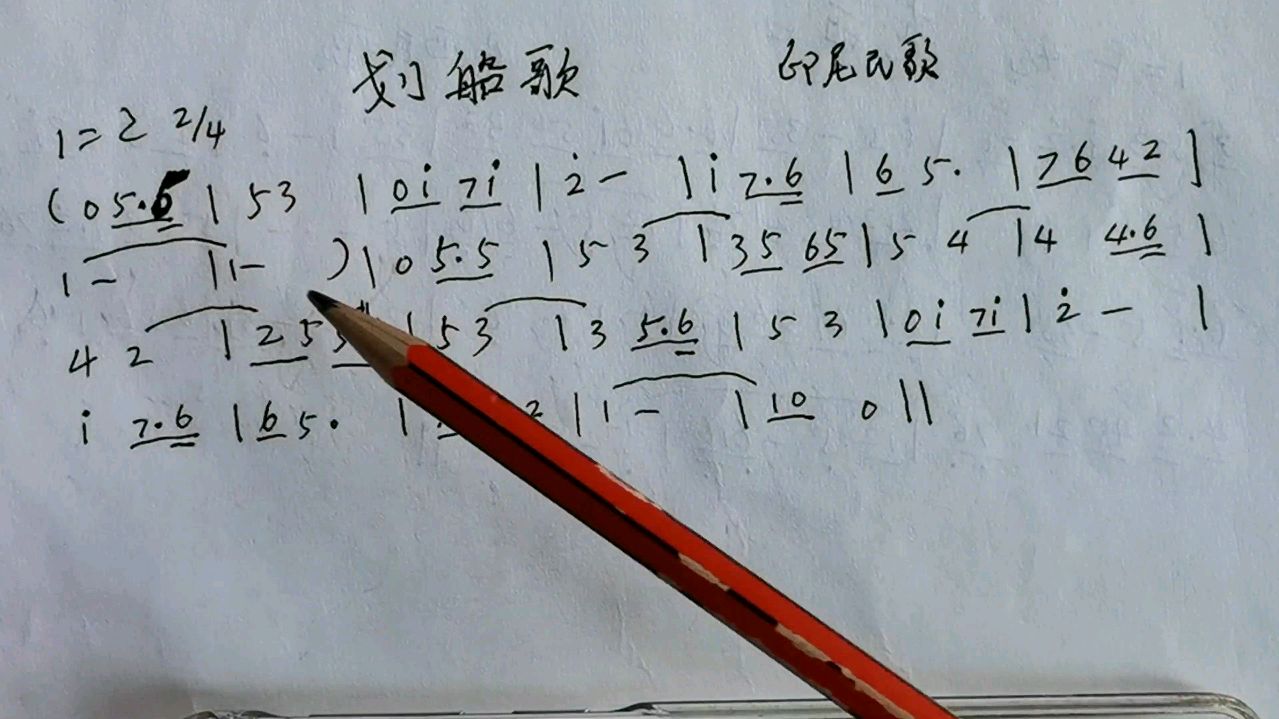 划船歌 印尼民歌
1=2 2/4
(0 5.6 | 5 3 | 0 i 7 i | 2̇ - | i 7.6 | 6 5. | 7 6 4 2 |
1 - | 1 - ) | 0 5.5 | 5 3 | 3 5 6 5 | 5 4 | 4 4.6 |
4 2 | 2 5 | 5 3 | 3 5.6 | 5 3 | 0 i 7 i | 2̇ - |
i 7.6 | 6 5. | 2 | 1 - | 1 0 0 ||